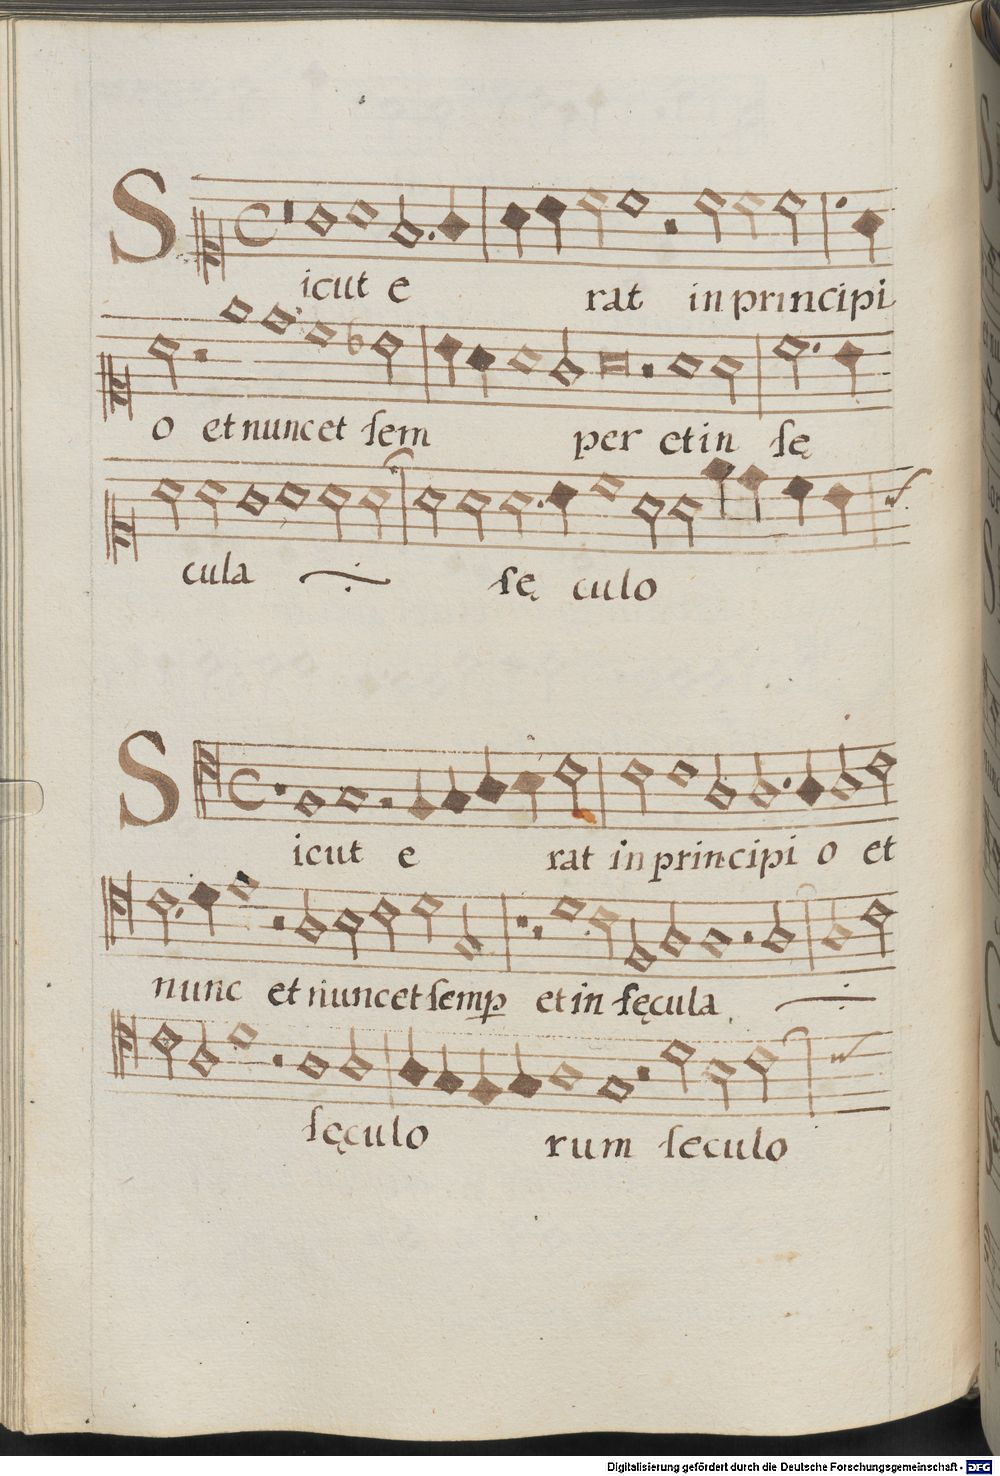 Sicut e rat in principi
o et nunc et sem per et in sę
cula sę culo
Sicut e rat in principi o et
nunc et nunc et semp et in sęcula
sęculo rum seculo
Digitalisierung gefördert durch die Deutsche Forschungsgemeinschaft - DFG